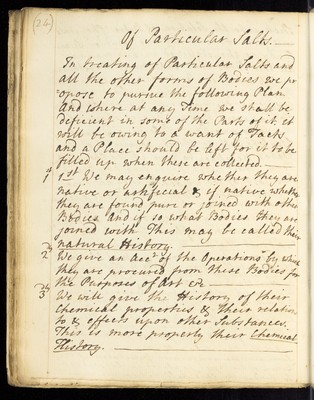 (26)
Of Particular Salts.
In treating of Particular Salts and
all the other forms of Bodies we pr
opose to pursue the following Plan
And where at any Time we shall be
deficient in some of the Parts of it it
will be owing to a want of Facts
and a Place should be left for it to be
filled up when these are collected
1 1st We may enquire whether they are
native or artificial & if native whether
they are found pure or joined with other
Bodies and if so what Bodies they are
joined with This may be called their
natural History.
2 We give an Acct of the Operations by which
they are procured from these Bodies for
the Purposes of Art &c
3 We will give the History of their
Chemical properties & their relation
to & effects upon other Substances.
This is more properly their Chemical
History.